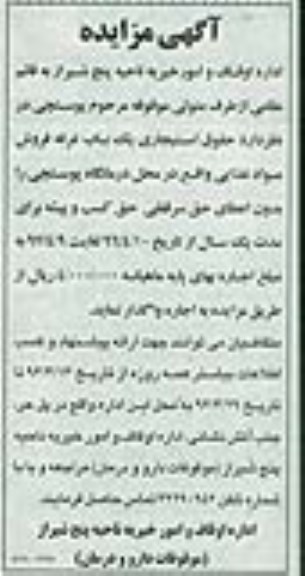 آگهی مزایده
اداره اوقاف و امور خیریه ناحیه پنج شیراز به قائم
مقامی از طرف متولی موقوفه مرحوم یوسنجی در
نظر دارد حقوق استیجاری یک باب غرفه فروش
مواد غذایی واقع در محل درمانگاه یوسنجی را
بدون اعطای حق سرقفلی، حق کسب و پیشه برای
مدت یک سال از تاریخ لغایت به
مبلغ اجاره بهای پایه ماهیانه ریال از
طریق مزایده به اجاره واگذار نماید.
متقاضیان می توانند جهت ارائه پیشنهاد و کسب
اطلاعات بیشتر همه روزه از تاریخ تا
تاریخ به محل این اداره واقع در پل حر،
جنب آتش نشانی، اداره اوقاف و امور خیریه ناحیه
پنج شیراز (موقوفات دارو و درمان) مراجعه و یا با
شماره تلفن تماس حاصل فرمایند.
اداره اوقاف و امور خیریه ناحیه پنج شیراز
(موقوفات دارو و درمان)